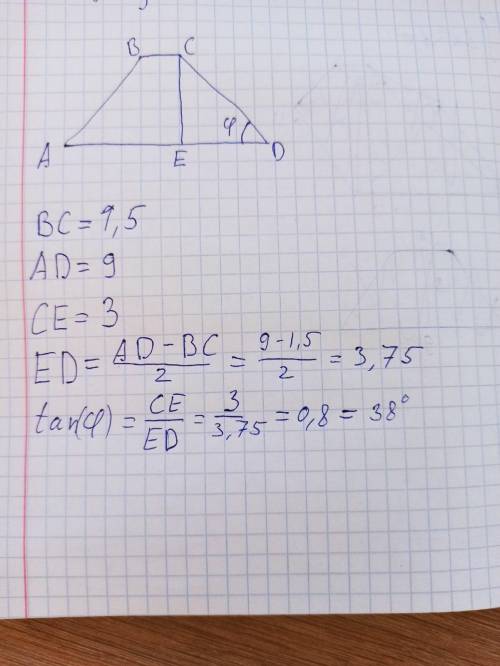 B C
φ
A E D
BC = 1,5
AD = 9
CE = 3
ED = \frac{AD - BC}{2} = \frac{9 - 1,5}{2} = 3,75
tan(φ) = \frac{CE}{ED} = \frac{3}{3,75} = 0,8 = 38°